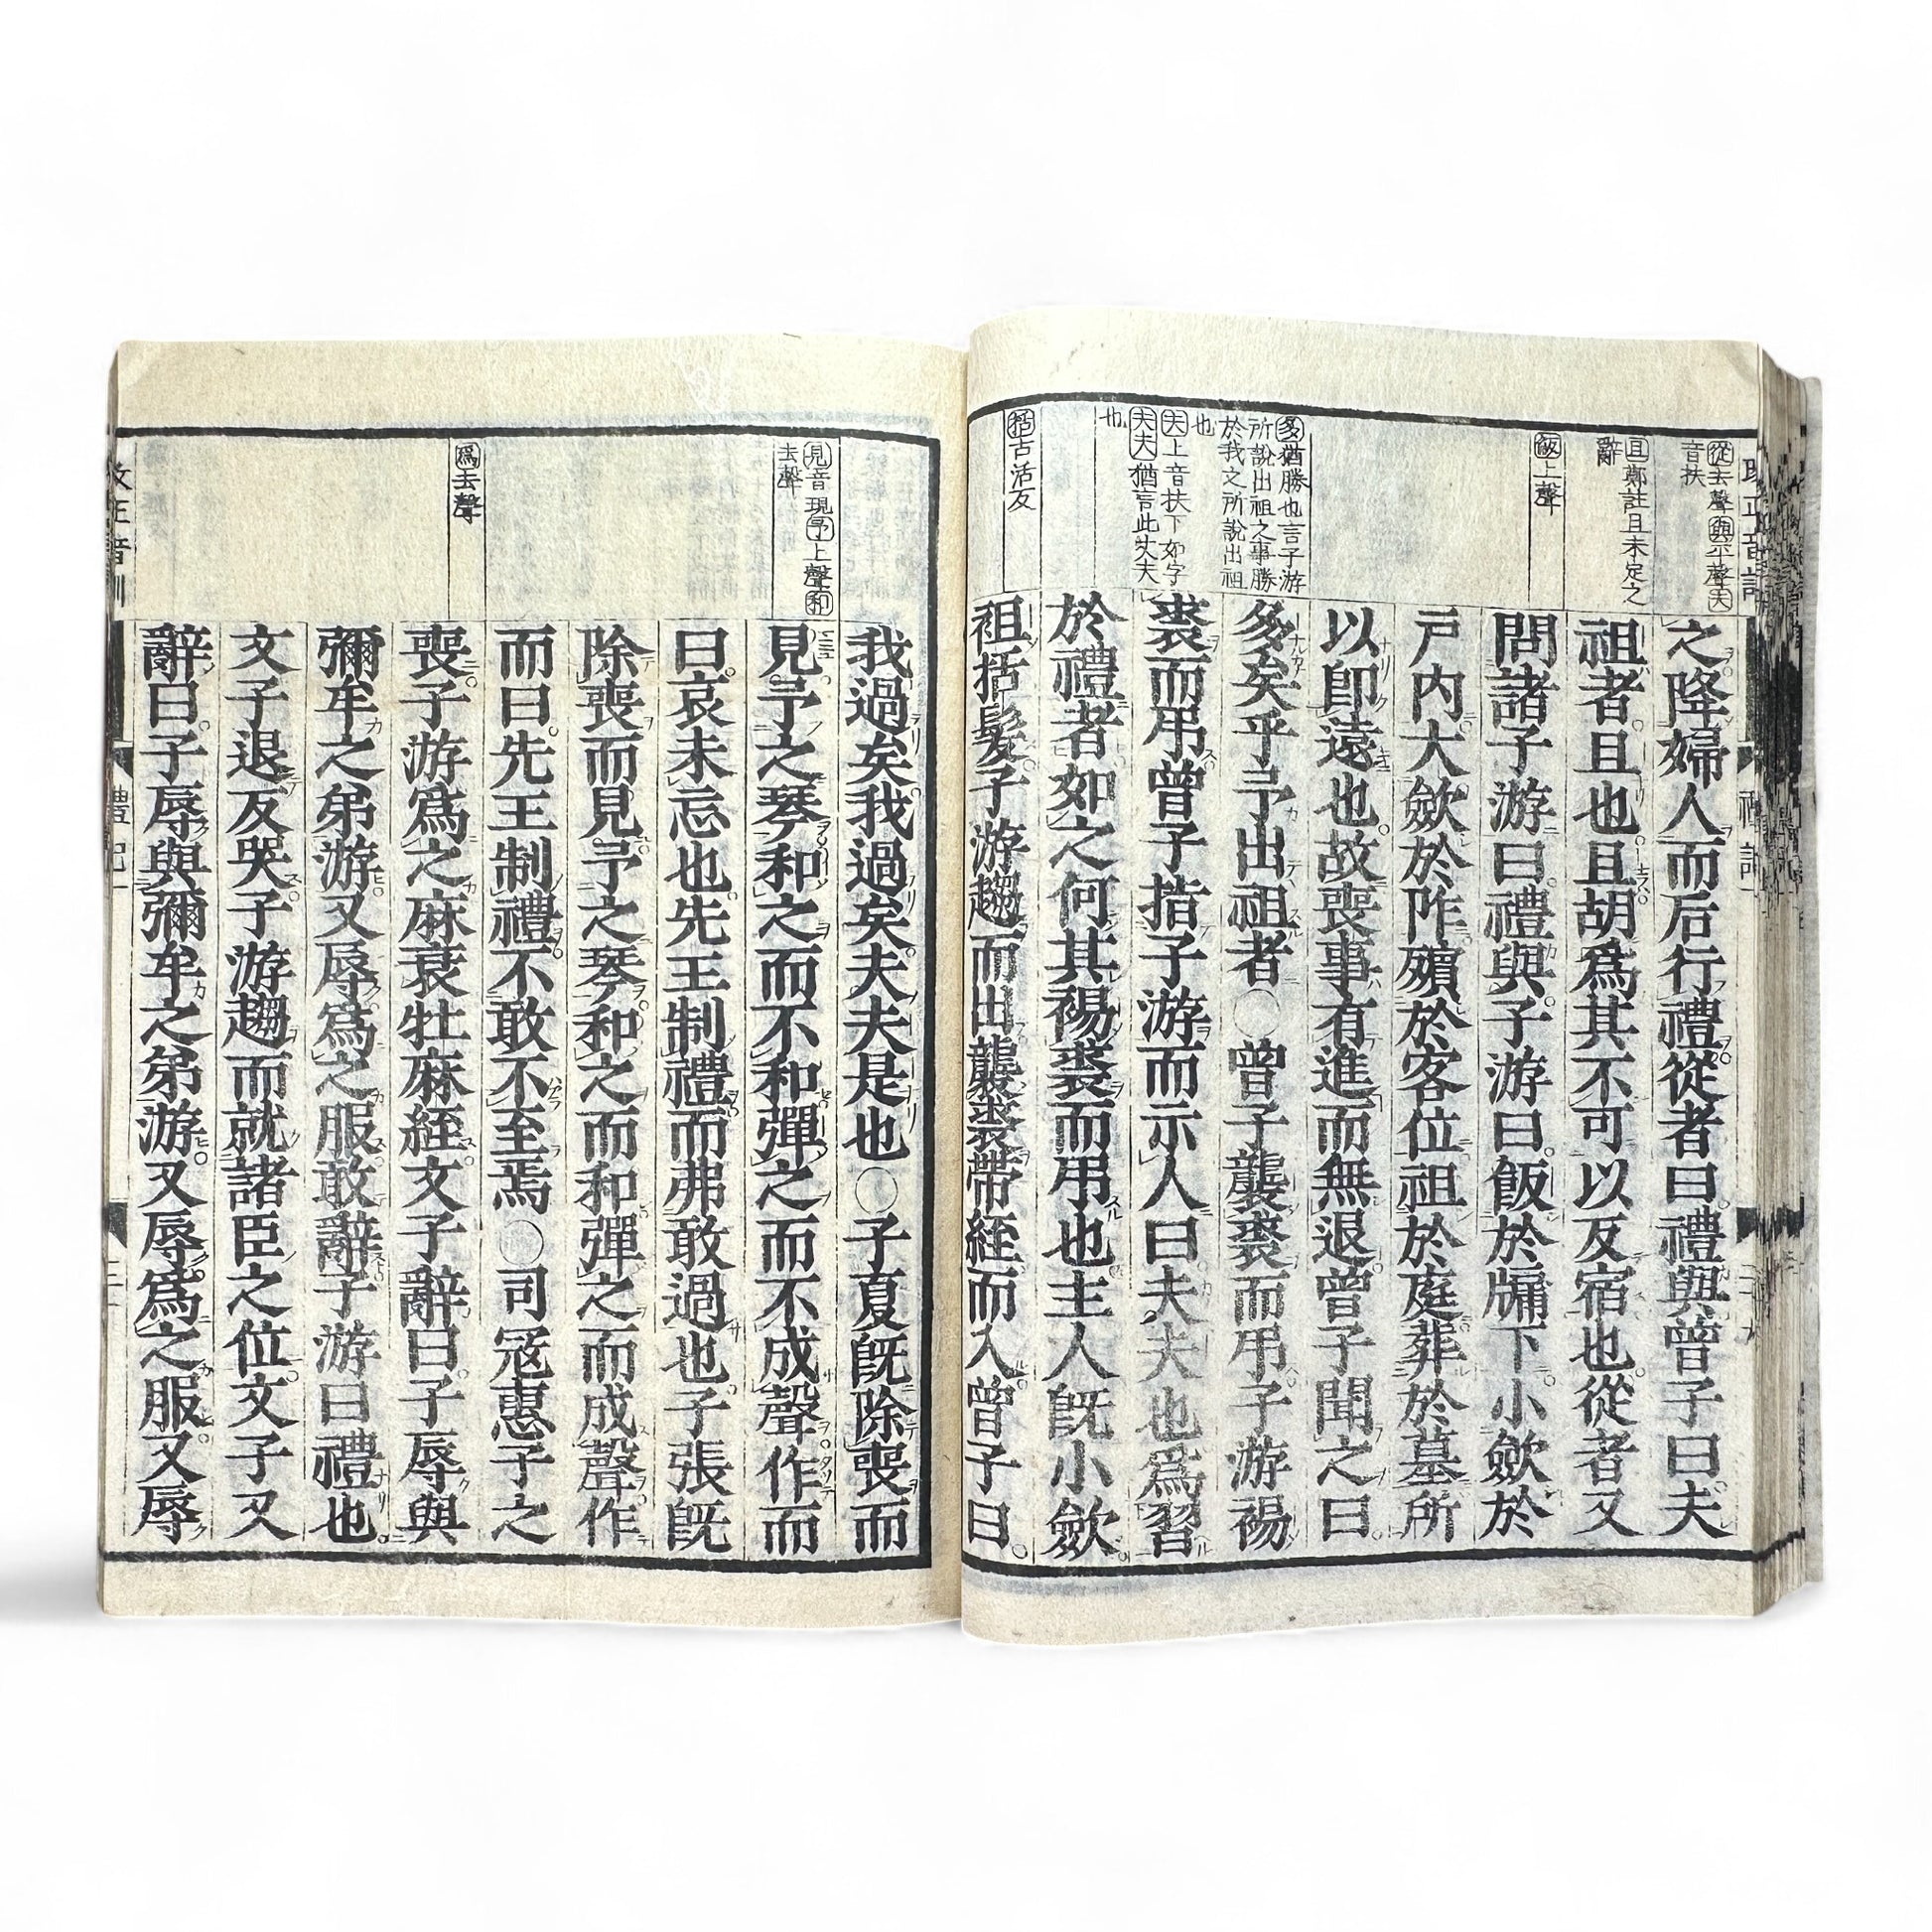 從去聲與平聲夫
音扶
且鄭註且未定之
辭
飯上聲
多猶勝也言子游
所說出祖之事勝
於我之所說出祖
也
夫上音扶下如字
夫夫猶言此丈夫
也
括古活反
之降婦人而后行禮從者曰禮與曾子曰夫
祖者且也且胡爲其不可以反宿也從者又
問諸子游曰禮與子游曰飯於牖下小斂於
戸内大斂於阼殯於客位祖於庭葬於墓所
以卽遠也故喪事有進而無退曾子聞之曰
多矣乎予出祖者○曾子襲裘而弔子游裼
裘而弔曾子指子游而示人曰夫夫也爲習
於禮者如之何其裼裘而弔也主人旣小斂
袒括髮子游趨而出襲裘帶絰而入曾子曰
見音現予上聲和
去聲
爲去聲
我過矣我過矣夫夫是也○子夏旣除喪而
見予之琴和之而不和彈之而不成聲作而
曰哀未忘也先王制禮而弗敢過也子張旣
除喪而見予之琴和之而和彈之而成聲作
而曰先王制禮不敢不至焉○司寇惠子之
喪子游爲之麻衰牡麻絰文子辭曰子辱與
彌牟之弟游又辱爲之服敢辭子游曰禮也
文子退反哭子游趨而就諸臣之位文子又
辭曰子辱與彌牟之弟游又辱爲之服又辱
改正音訓
禮記一